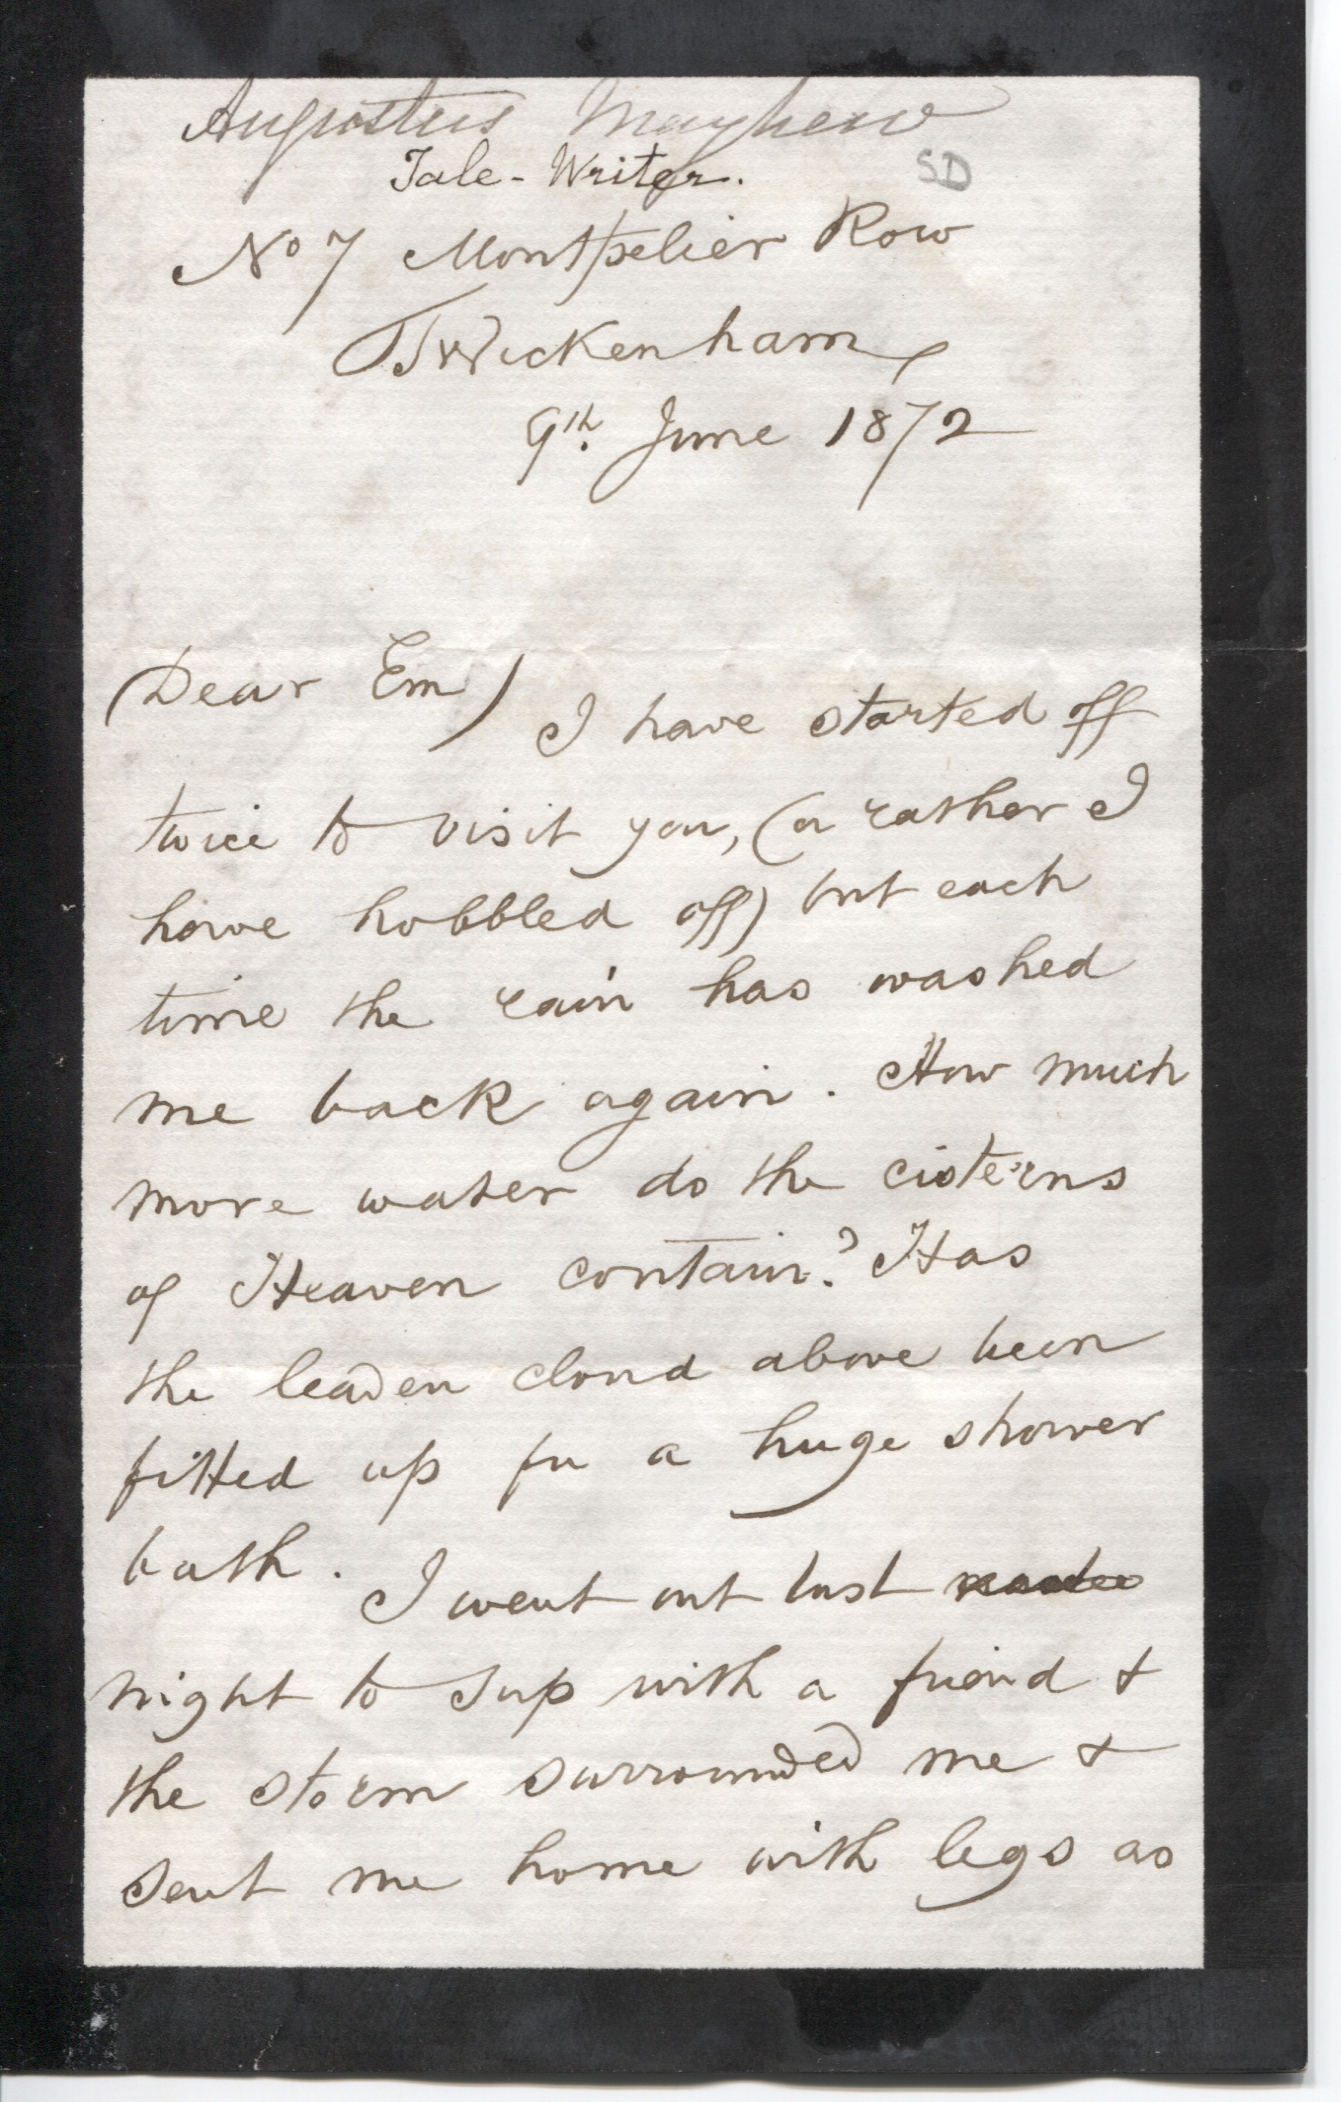 Augustus Mayhew
Tale-Writer.
SD
No 7 Montpelier Row
Twickenham
9th June 1872
(Dear Em) I have started off
twice to visit you, (or rather I
have hobbled off) but each
time the rain has washed
me back again. How much
more water do the cisterns
of Heaven contain? Has
the leaden cloud above been
fitted up for a huge shower
bath.
I went out last
night to sup with a friend &
the storm surrounded me &
sent me home with legs as